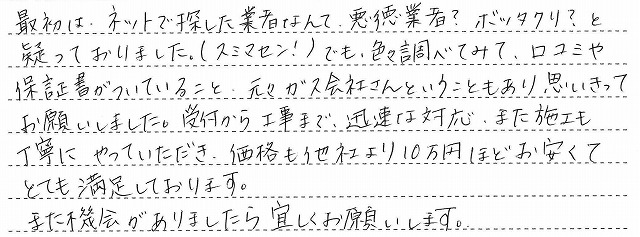 最初は、ネットで探した業者なんて、悪徳業者？ボッタクリ？と
疑っておりました。(スミマセン！)でも、色々調べてみて、口コミや
保証書がついていること、元々ガス会社さんということもあり思いきって
お願いしました。受付から工事まで、迅速な対応、また施工も
丁寧にやっていただき、価格も他社より10万円ほどお安くて
とても満足しております。
また機会がありましたら宜しくお願いします。